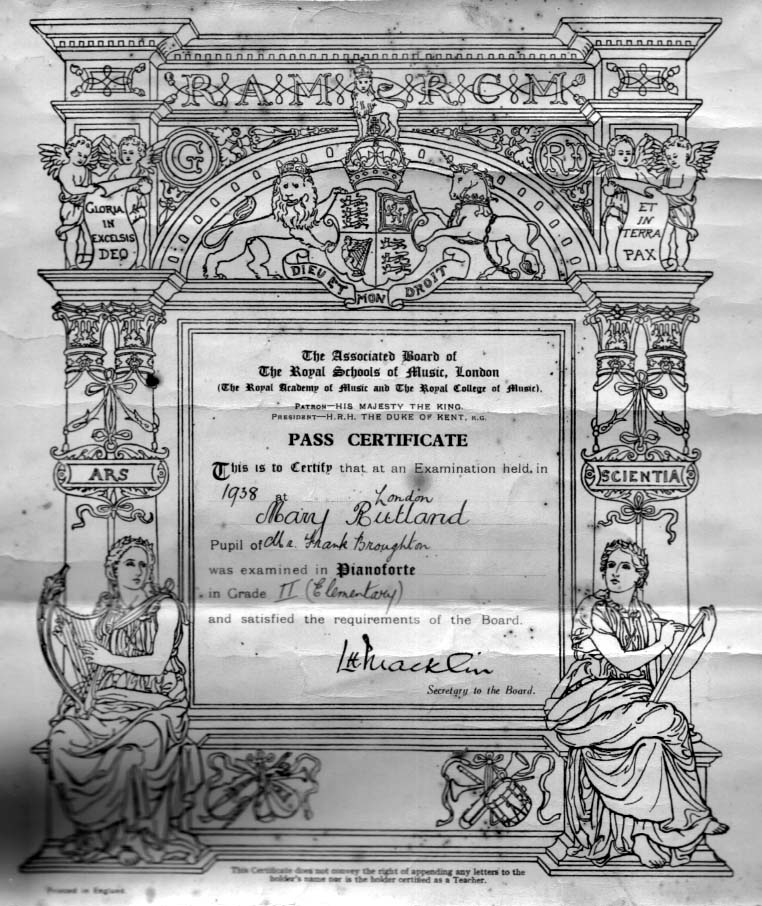 R.A.M. R.C.M.
G RI
GLORIA
IN
EXCELSIS
DEO
ET
IN
TERRA
PAX
DIEU ET MON DROIT
The Associated Board of
The Royal Schools of Music, London
(The Royal Academy of Music and The Royal College of Music).
PATRON—HIS MAJESTY THE KING.
PRESIDENT—H.R.H. THE DUKE OF KENT, K.G.
PASS CERTIFICATE
This is to Certify that at an Examination held, in
1938 at London
Mary Rutland
Pupil of Mr. Frank Broughton
was examined in Pianoforte
in Grade II (Elementary)
and satisfied the requirements of the Board.
L H Macklin
Secretary to the Board.
ARS
SCIENTIA
This Certificate does not convey the right of appending any letters to the
holder's name nor is the holder certified as a Teacher.
Printed in England.